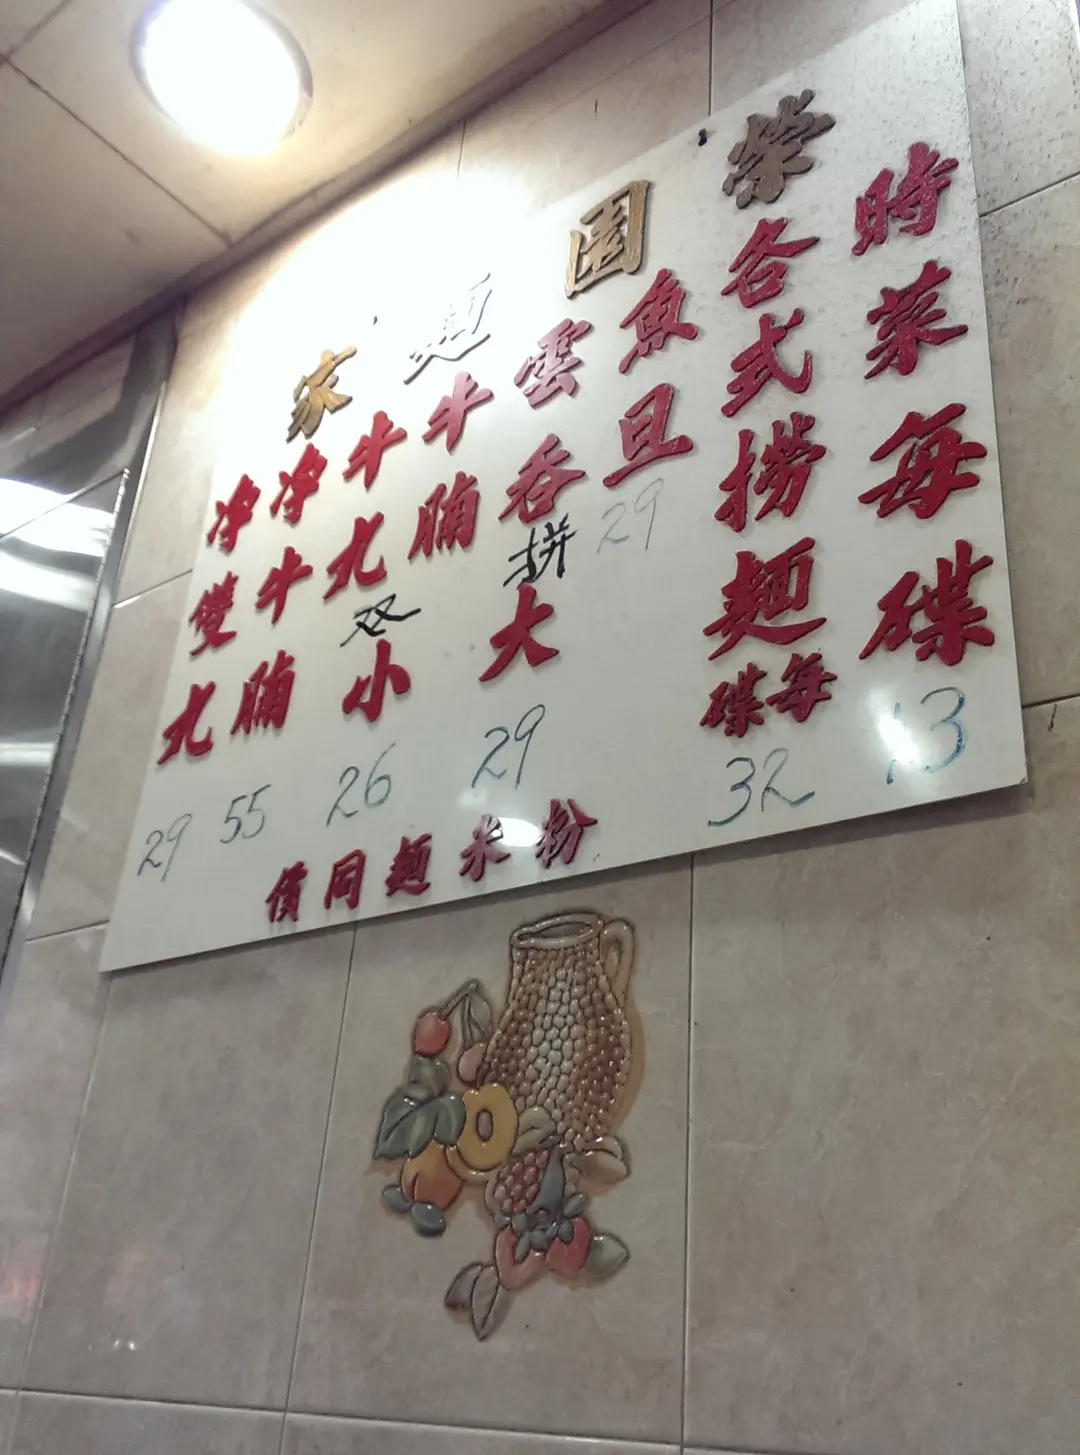 榮園麵家
時菜每碟
13
各式撈麵每碟
32
魚旦
29
雲吞
拼
大
29
牛腩
牛丸
双
小
26
净牛腩
55
净雙丸
29
粉米麵同價